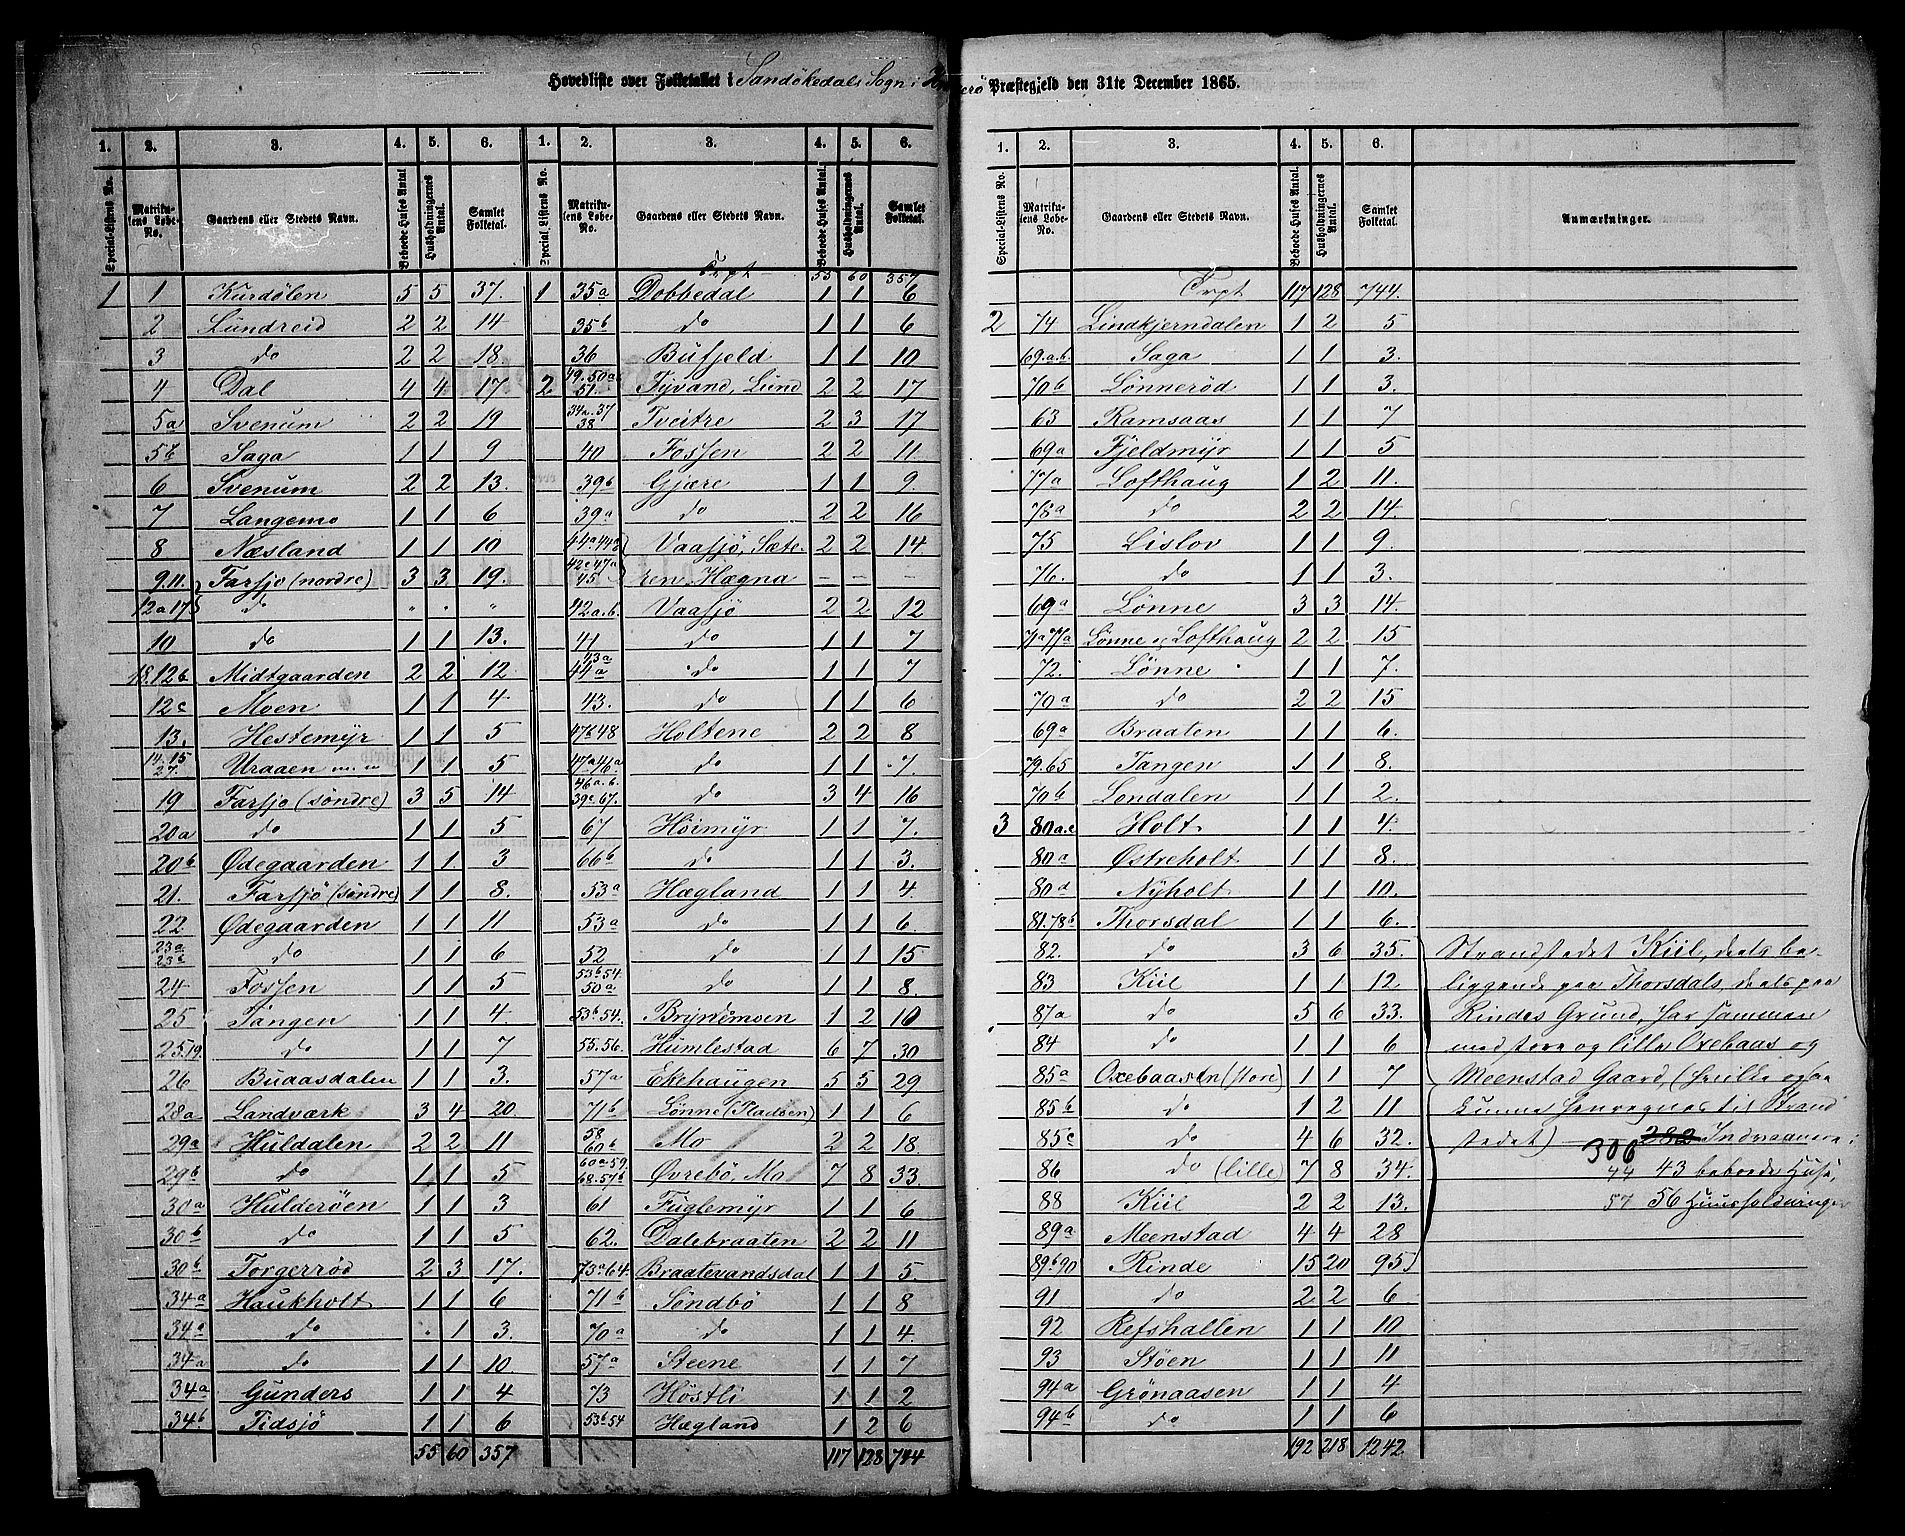 Hovedliste over Folketallet i Sandökedals Sogn i Præstegjeld den 31te December 1865.
1. 2. 3. 4. 5. 6. 1. 2. 3. 4. 5. 6.
Special-Listens No. Matrikulens Løbe-No. Gaardens eller Stedets Navn. Beboede Huses Antal. Husholdningernes Antal. Samlet Folketal. Special-Listens No. Matrikulens Løbe-No. Gaardens eller Stedets Navn. Beboede Huses Antal. Husholdningernes Antal. Samlet Folketal.
1 1 Kurdölen 5 5 37.
2 Lundreid 2 2 14
3 do 2 2 18.
4 Dal 4 4 17
5a Svenum 2 2 19
5b Saga 1 1 9
6 Svenum 2 2 13.
7 Langemo 1 1 6
8 Næsland 1 1 10
9.11. Farsjo (nordre) 3 3 19.
12a 17 do " " "
10 do 1 1 13.
18.12b Midtgaarden 2 2 12.
12c Moen 1 1 4
13. Hestemyr 1 1 5
14.15 27. Uraaen m. m 1 1 5
19 Farsjo (söndre) 3 5 14
20a do 1 1 5
20b Ødegaarden 1 1 3
21. Farsjö (söndre) 1 1 8.
22 Ødegaarden 1 1 11
23a 23c do 1 1 6
24 Fossen 1 1 5
25 Tangen 1 1 4.
25.19. do 1 1 7
26 Buaasdalen 1 1 3.
28a Landværk 3 4 20.
29a Huldalen 2 2 11
29b do 1 1 5
30a Hulderöen 1 1 3
30b do 1 1 5
30b Torgerröd 2 3 17.
34a Haukholt 1 1 6
34a do " 1 3.
34a do 1 1 10
34a Gunders 1 1 4
34b Tidsjö 1 1 6
55 60 357
Trpt 55 60 357
1 35a Dobbedal 1 1 6
35b do 1 1 6
36 Bufjeld 1 1 10
2 49.50a 51. Tyvand, Lund 2 2 17
34a.37 38 Tveitre 2 3 17
40 Fossen 2 2 11
39b Gjære 1 1 9
39a do 2 2 16
44a.44b Vaasjö, Sæte- 2 2 14
42c 47a 45 ren Hægna – – –
42a.b. Vaasjö 2 2 12
41 do 1 1 7
43a 44a do 1 1 7
43. do 1 1 6
47b 48 Holtene 2 2 8
47a 46a do 1 1 7.
46a.b. 39c 67. do 3 4 16
67 Höimyr 1 1 7.
66b do 1 1 3.
53a Hægland 1 1 4
53a do 1 1 6.
52 do 1 1 15
53b 54. 50a do 1 1 8.
53b 54. Brynemoen 1 2 10
55.56. Humlestad 6 7 30
57a Ekehaugen 5 5 29
71b Lönne (Pladsen) 1 1 6
58 60b Mo 2 2 18.
60a 59. 68.57b Øvrebö, Mo 7 8 33.
61 Fuglemyr 1 1 6
62. Dalebraaten 2 2 11
73a 64. Braatevandsdal 1 1 5.
71b Söndbö 1 1 8
70a do 1 1 4.
57a Steene 1 1 7
73 Höstli 1 1 2
53b 54 Hægland 1 2 6
117 128 744
1. 2. 3. 4. 5. 6.
Special-Listens No. Matrikulens Løbe-No. Gaardens eller Stedets Navn. Beboede Huses Antal. Husholdningernes Antal. Samlet Folketal. Anmærkninger.
Trpt 117 128 744.
2 74 Lindkjerndalen 1 2 5
69.a.b. Saga 1 1 3.
70b Lönneröd 1 1 3.
63 Ramsaas 1 1 7
69a Fjeldmyr 1 1 5
77a Lofthaug 1 2 11.
78a do 2 2 14.
75 Lislov 1 1 9.
76. do 1 1 3.
69a Lönne 3 3 14.
71a 77a Lönne og Lofthaug 2 2 15
72. Lönne 1 1 7.
70a do 2 2 15
69a Braaten 1 1 6.
79.65 Tangen 1 1 8.
70b Londalen 1 1 2.
3 80a.c Holt 1 1 4.
80a Østreholt 1 1 8.
80a Nyholt 1 1 10.
81.78b Thorsdal 1 1 6.
82. do 3 6 35. Strandstedet Kiil, deels be-
83 Kiil 1 1 12. liggende paa Thorsdals, deels paa
87a do 5 6 33. Rindes Grund, har sammen
84 do 1 1 6 med store og lille Oxebaas og
85a Oxebaasen (store) 1 1 7 Meenstad Gaard, (hvilke ogsaa
85b do 1 2 11 kunne henregnes til Strand
85c do 4 6 32. stedet) 306 282 Indvaanere i
86 do (lille) 7 8 34. 44 43 beboede Huse,
88 Kiil 2 2 13. 57 56 Huusholdninger
89a Meenstad 4 4 28
89b 90 Rinde 15 20 95
91 do 2 2 6
92 Refshallen 1 1 10
93 Stöen 1 1 11
94a Grönaasen 1 1 4
94b do 1 1 6
192 218 1242